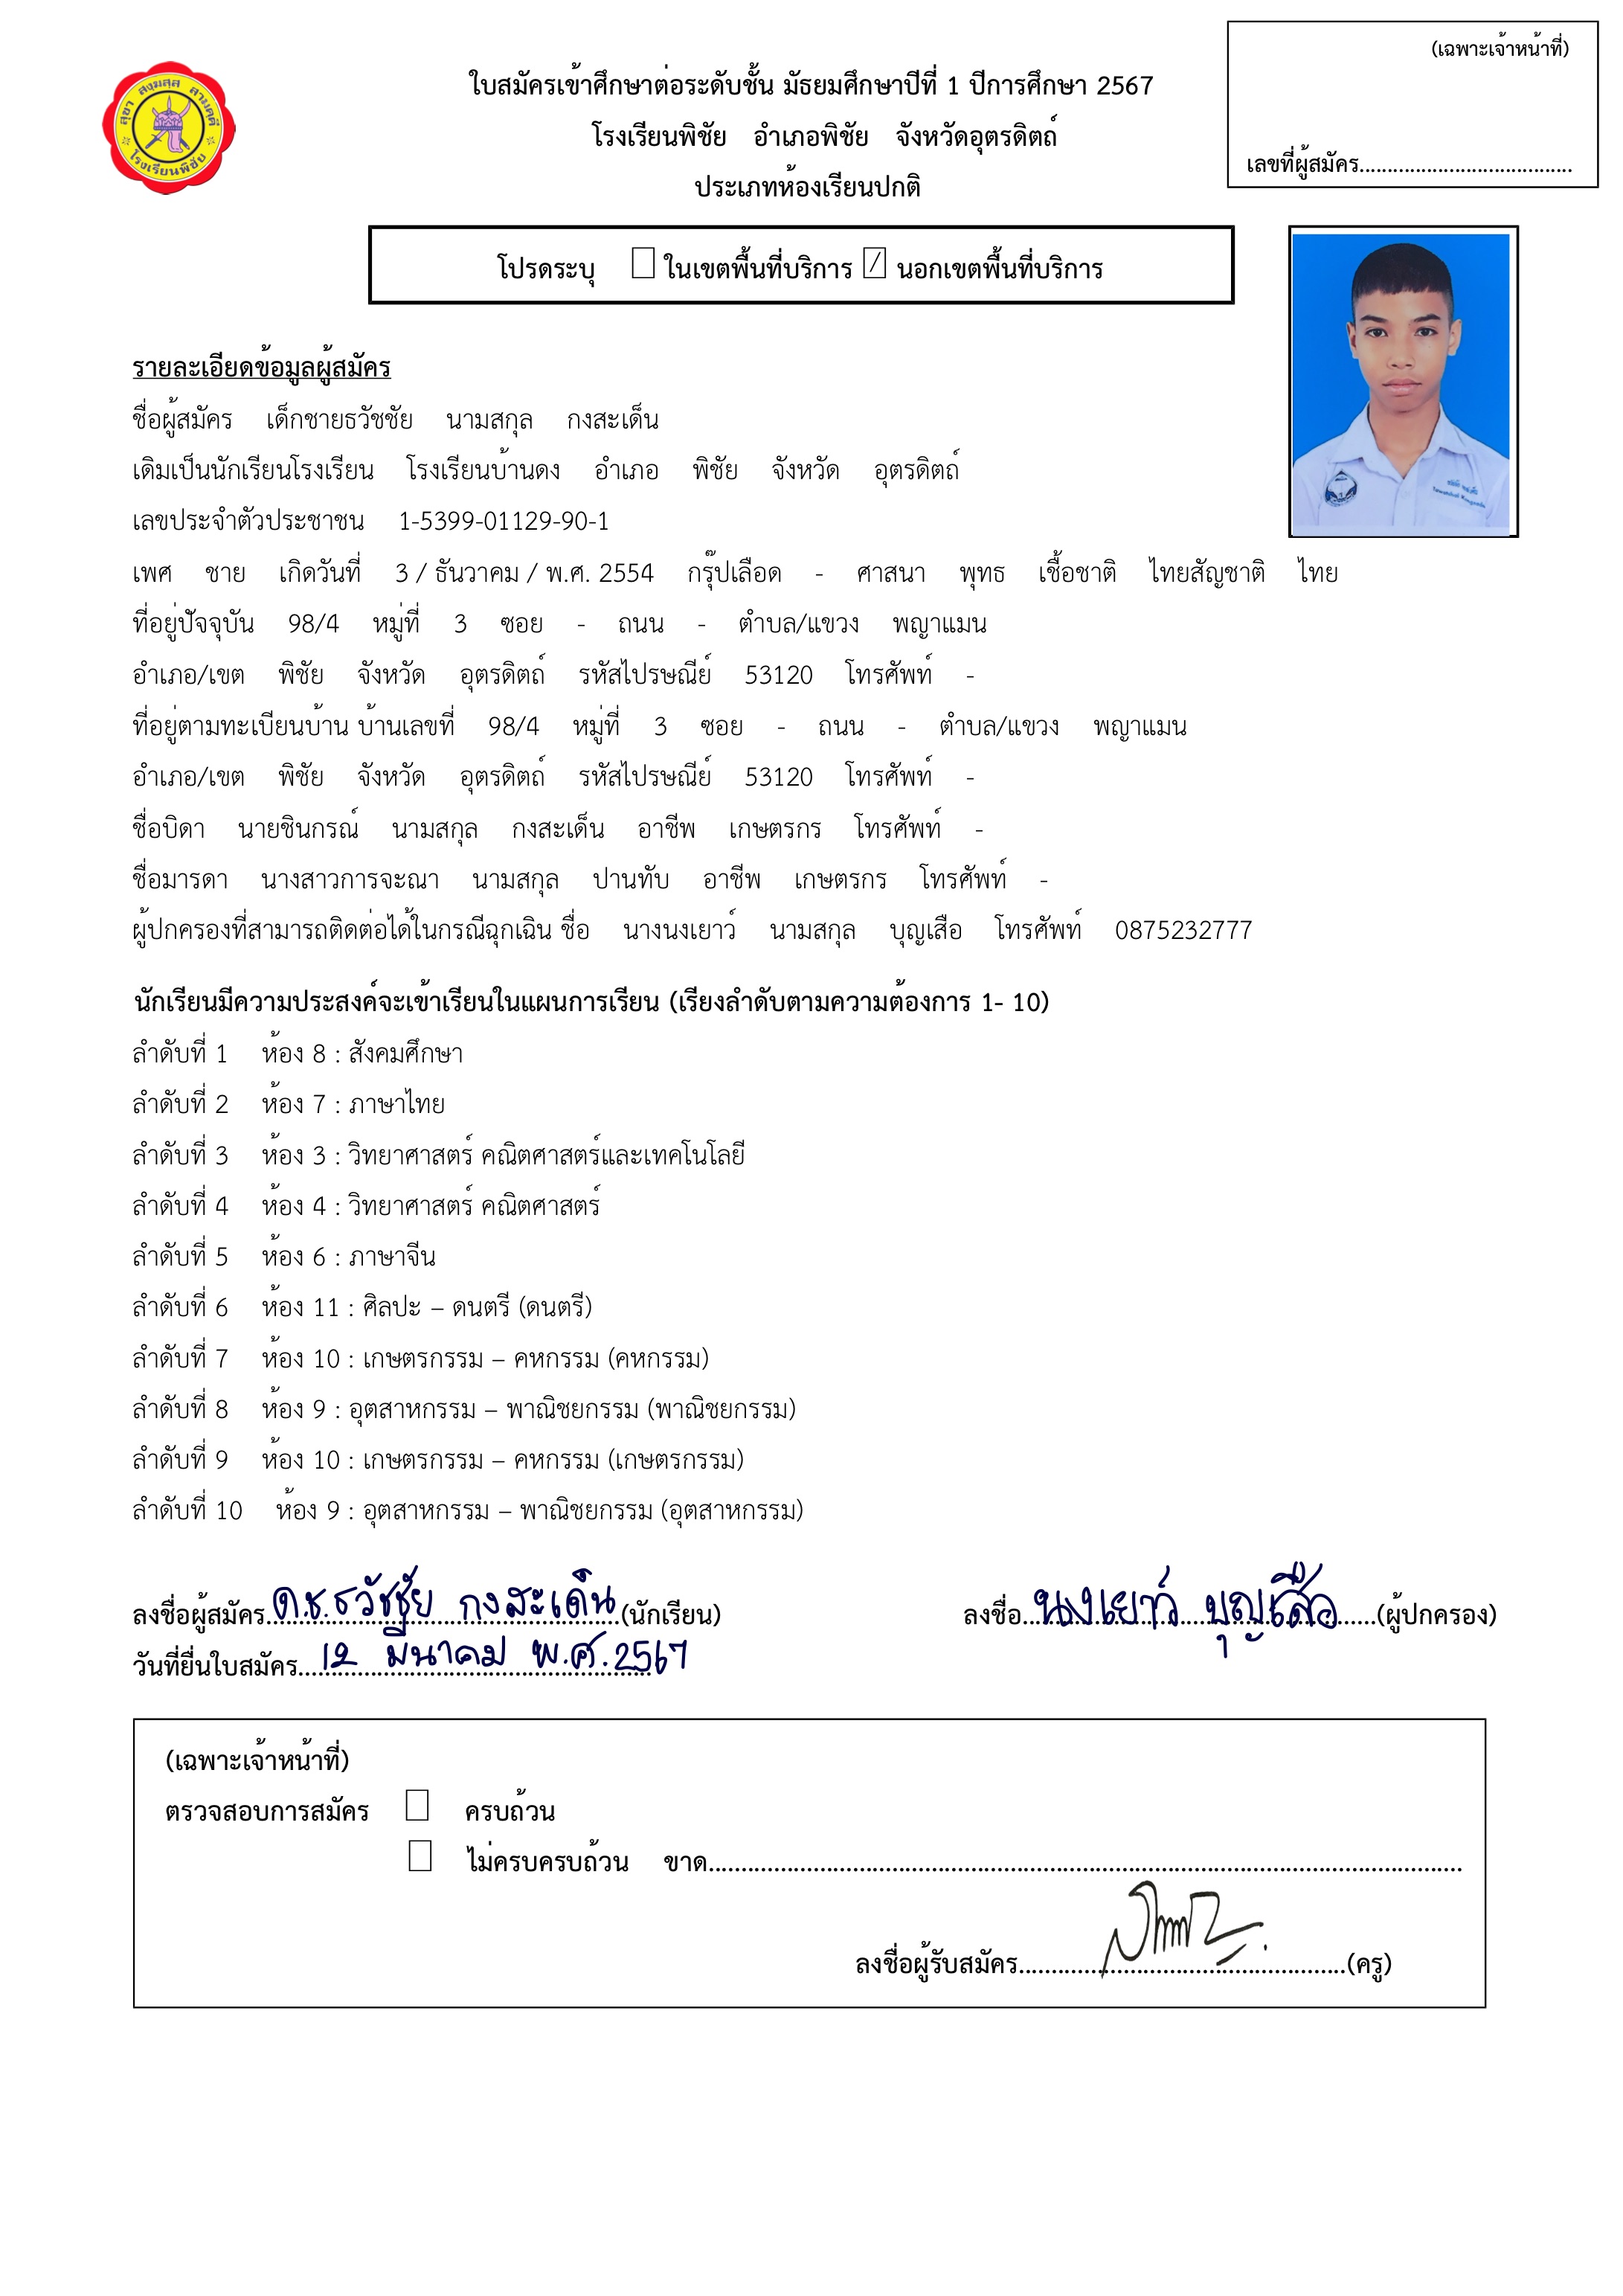 (เฉพาะเจ้าหน้าที่)
ใบสมัครเข้าศึกษาต่อระดับชั้น มัธยมศึกษาปีที่ 1 ปีการศึกษา 2567
โรงเรียนพิชัย อำเภอพิชัย จังหวัดอุตรดิตถ์
เลขที่ผู้สมัคร......................................
ประเภทห้องเรียนปกติ
สุขา สงฺฆสฺส สามคฺคี
โรงเรียนพิชัย
โปรดระบุ ☐ ในเขตพื้นที่บริการ ☑ นอกเขตพื้นที่บริการ
รายละเอียดข้อมูลผู้สมัคร
ชื่อผู้สมัคร เด็กชายธวัชชัย นามสกุล กงสะเด็น
เดิมเป็นนักเรียนโรงเรียน โรงเรียนบ้านดง อำเภอ พิชัย จังหวัด อุตรดิตถ์
เลขประจำตัวประชาชน 1-5399-01129-90-1
เพศ ชาย เกิดวันที่ 3 / ธันวาคม / พ.ศ. 2554 กรุ๊ปเลือด - ศาสนา พุทธ เชื้อชาติ ไทยสัญชาติ ไทย
ที่อยู่ปัจจุบัน 98/4 หมู่ที่ 3 ซอย - ถนน - ตำบล/แขวง พญาแมน
อำเภอ/เขต พิชัย จังหวัด อุตรดิตถ์ รหัสไปรษณีย์ 53120 โทรศัพท์ -
ที่อยู่ตามทะเบียนบ้าน บ้านเลขที่ 98/4 หมู่ที่ 3 ซอย - ถนน - ตำบล/แขวง พญาแมน
อำเภอ/เขต พิชัย จังหวัด อุตรดิตถ์ รหัสไปรษณีย์ 53120 โทรศัพท์ -
ชื่อบิดา นายชินกรณ์ นามสกุล กงสะเด็น อาชีพ เกษตรกร โทรศัพท์ -
ชื่อมารดา นางสาวการจะณา นามสกุล ปานทับ อาชีพ เกษตรกร โทรศัพท์ -
ผู้ปกครองที่สามารถติดต่อได้ในกรณีฉุกเฉิน ชื่อ นางนงเยาว์ นามสกุล บุญเสือ โทรศัพท์ 0875232777
นักเรียนมีความประสงค์จะเข้าเรียนในแผนการเรียน (เรียงลำดับตามความต้องการ 1- 10)
ลำดับที่ 1 ห้อง 8 : สังคมศึกษา
ลำดับที่ 2 ห้อง 7 : ภาษาไทย
ลำดับที่ 3 ห้อง 3 : วิทยาศาสตร์ คณิตศาสตร์และเทคโนโลยี
ลำดับที่ 4 ห้อง 4 : วิทยาศาสตร์ คณิตศาสตร์
ลำดับที่ 5 ห้อง 6 : ภาษาจีน
ลำดับที่ 6 ห้อง 11 : ศิลปะ – ดนตรี (ดนตรี)
ลำดับที่ 7 ห้อง 10 : เกษตรกรรม – คหกรรม (คหกรรม)
ลำดับที่ 8 ห้อง 9 : อุตสาหกรรม – พาณิชยกรรม (พาณิชยกรรม)
ลำดับที่ 9 ห้อง 10 : เกษตรกรรม – คหกรรม (เกษตรกรรม)
ลำดับที่ 10 ห้อง 9 : อุตสาหกรรม – พาณิชยกรรม (อุตสาหกรรม)
ลงชื่อผู้สมัคร ด.ช.ธวัชชัย กงสะเด็น (นักเรียน) ลงชื่อ นงเยาว์ บุญเสือ (ผู้ปกครอง)
วันที่ยื่นใบสมัคร 12 มีนาคม พ.ศ.2567
(เฉพาะเจ้าหน้าที่)
ตรวจสอบการสมัคร ☐ ครบถ้วน
☐ ไม่ครบครบถ้วน ขาด......................................
ลงชื่อผู้รับสมัคร......................................(ครู)